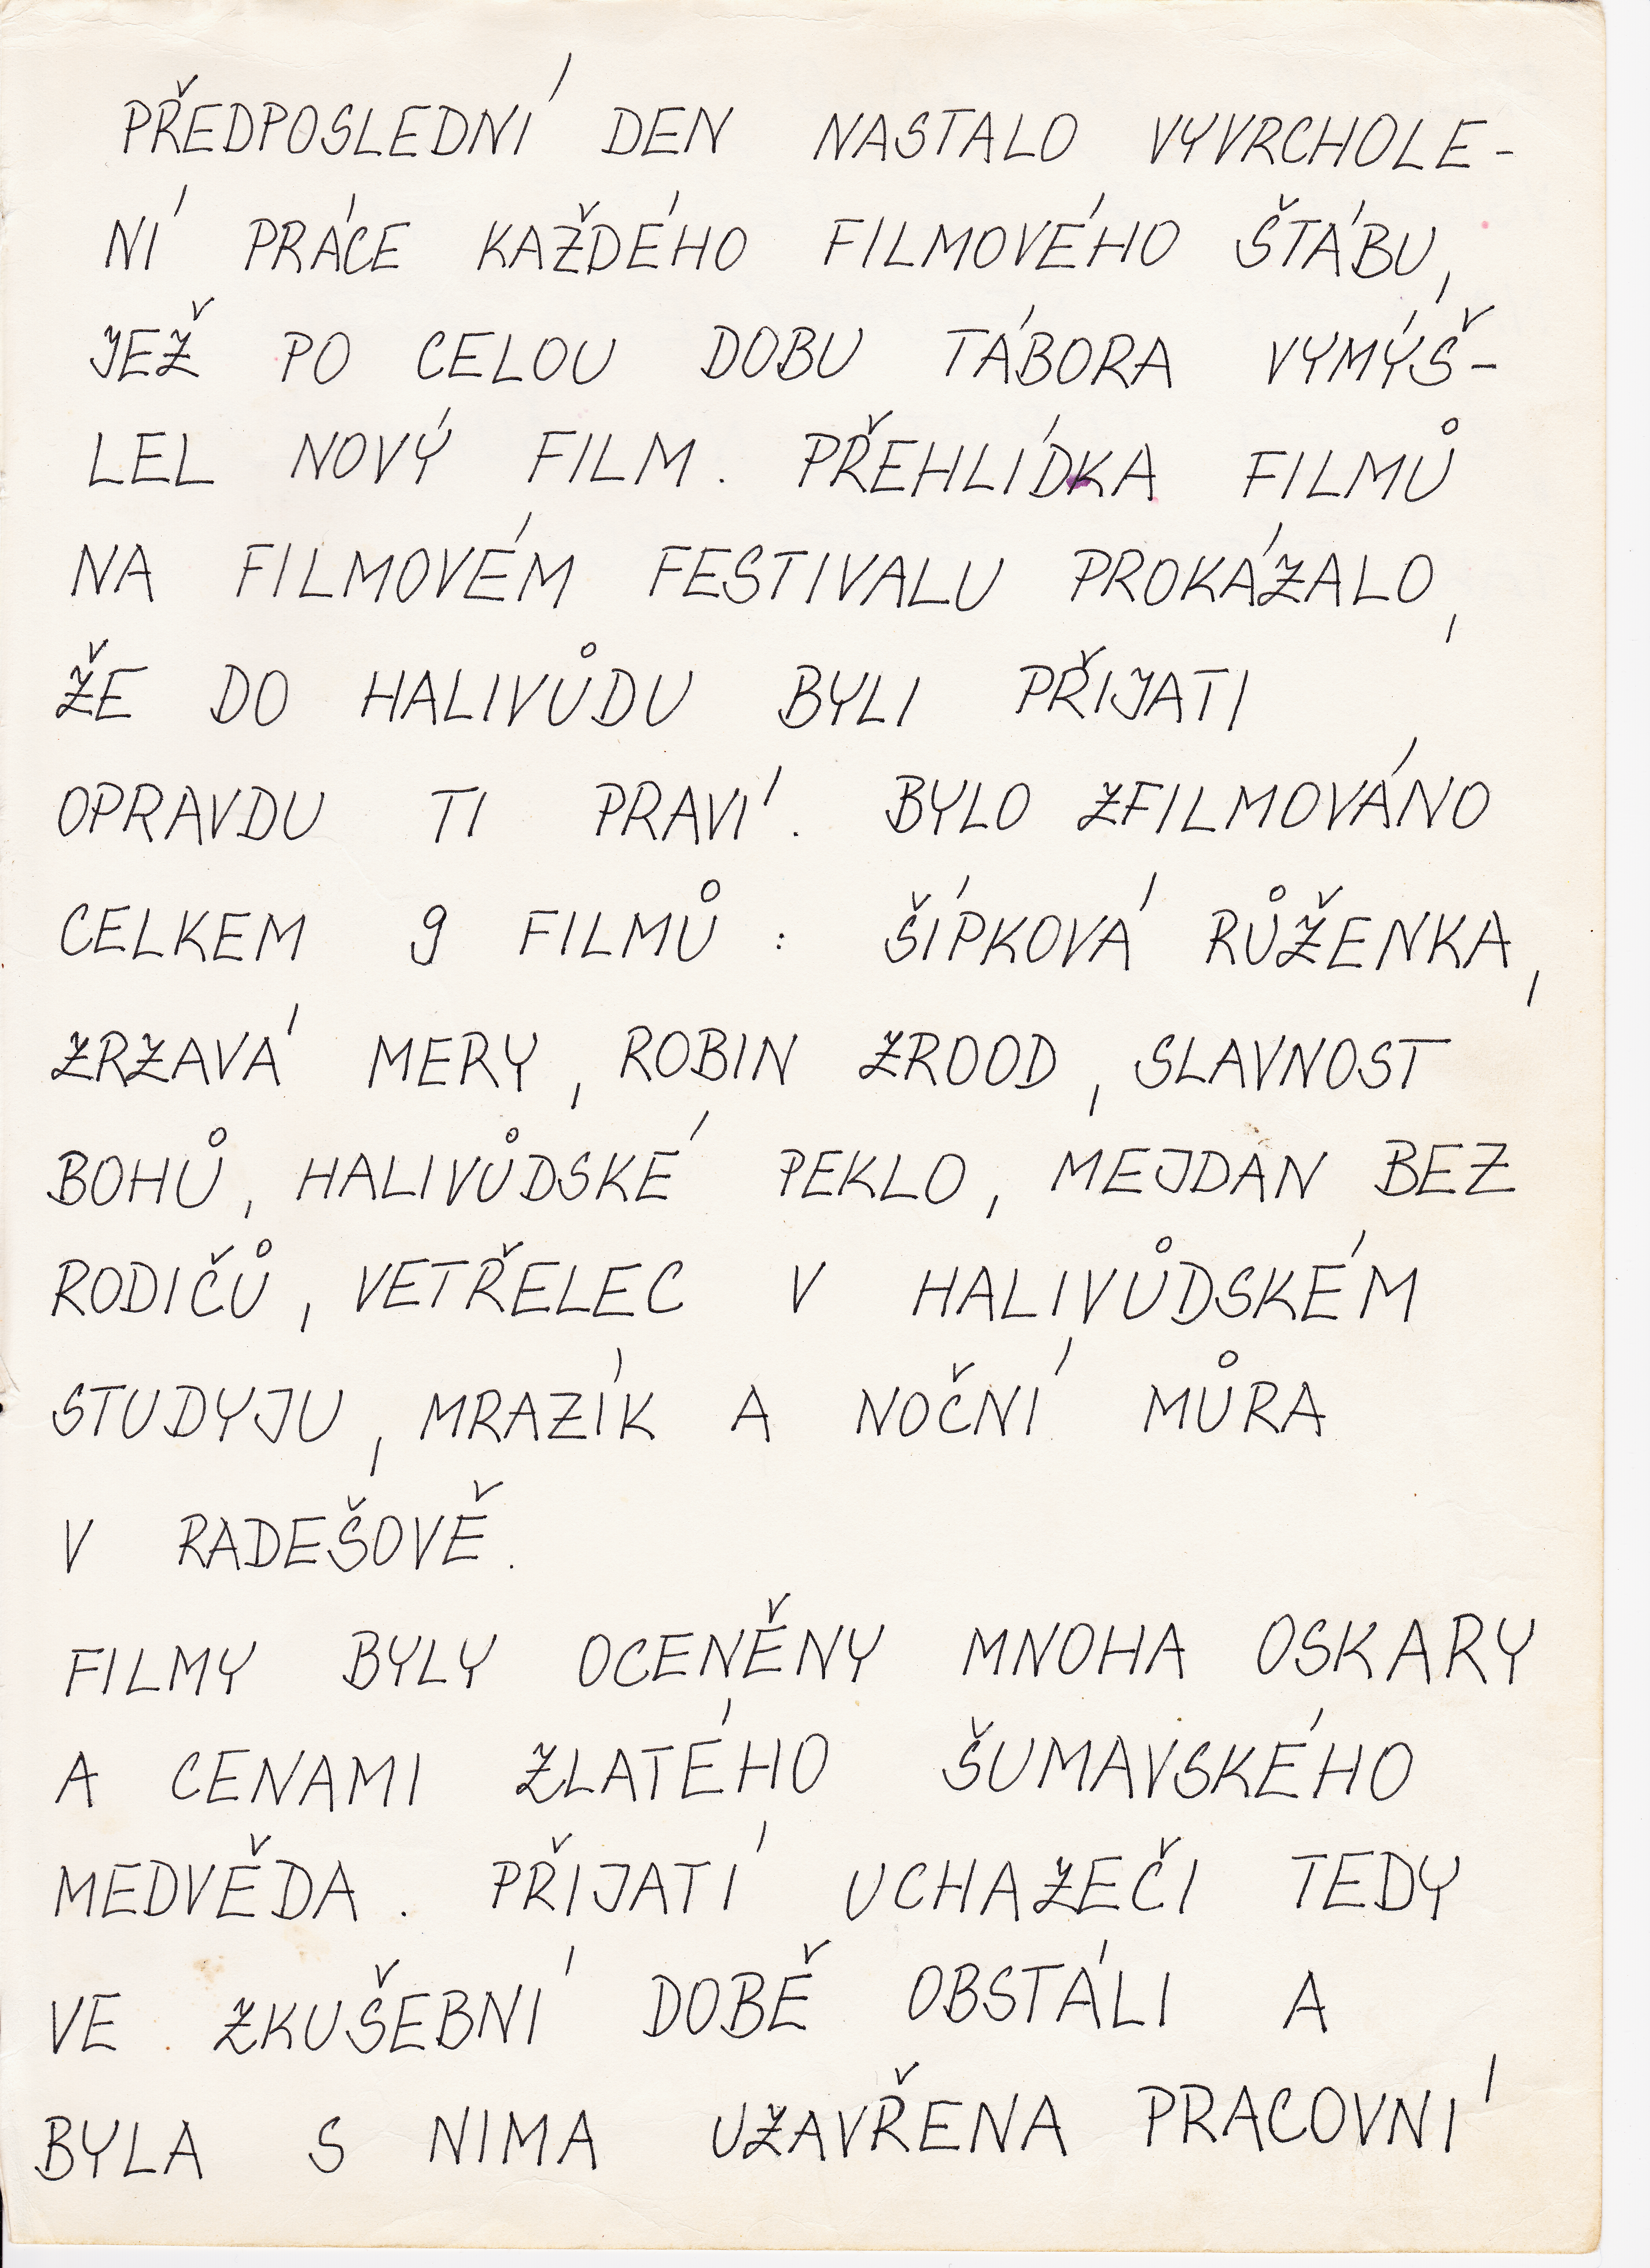 PŘEDPOSLEDNÍ DEN NASTALO VYVRCHOLE-
NÍ PRÁCE KAŽDÉHO FILMOVÉHO ŠTÁBU,
JEŽ PO CELOU DOBU TÁBORA VYMÝŠ-
LEL NOVÝ FILM. PŘEHLÍDKA FILMŮ
NA FILMOVÉM FESTIVALU PROKÁZALO,
ŽE DO HALIVŮDU BYLI PŘIJATI
OPRAVDU TI PRAVÍ. BYLO ZFILMOVÁNO
CELKEM 9 FILMŮ : ŠÍPKOVÁ RŮŽENKA,
ZRZAVÁ MERY, ROBIN ZROOD, SLAVNOST
BOHŮ, HALIVŮDSKÉ PEKLO, MEJDAN BEZ
RODIČŮ, VETŘELEC V HALIVŮDSKÉM
STUDYJU, MRAZÍK A NOČNÍ MŮRA
V RADEŠOVĚ.
FILMY BYLY OCENĚNY MNOHA OSKARY
A CENAMI ZLATÉHO ŠUMAVSKÉHO
MEDVĚDA. PŘIJATÍ UCHAZEČI TEDY
VE ZKUŠEBNÍ DOBĚ OBSTÁLI A
BYLA S NIMA UZAVŘENA PRACOVNÍ